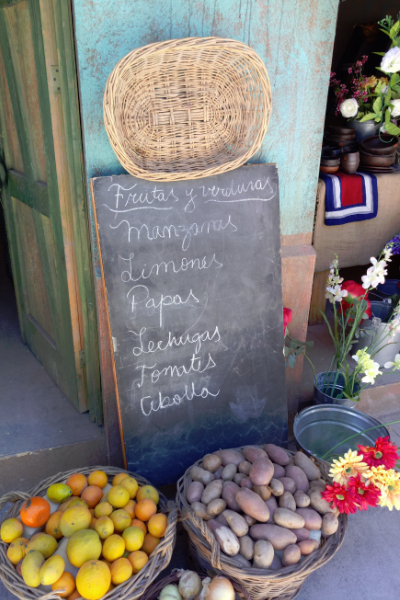 Frutas y verduras
Manzanas
Limones
Papas
Lechugas
Tomates
Cebolla